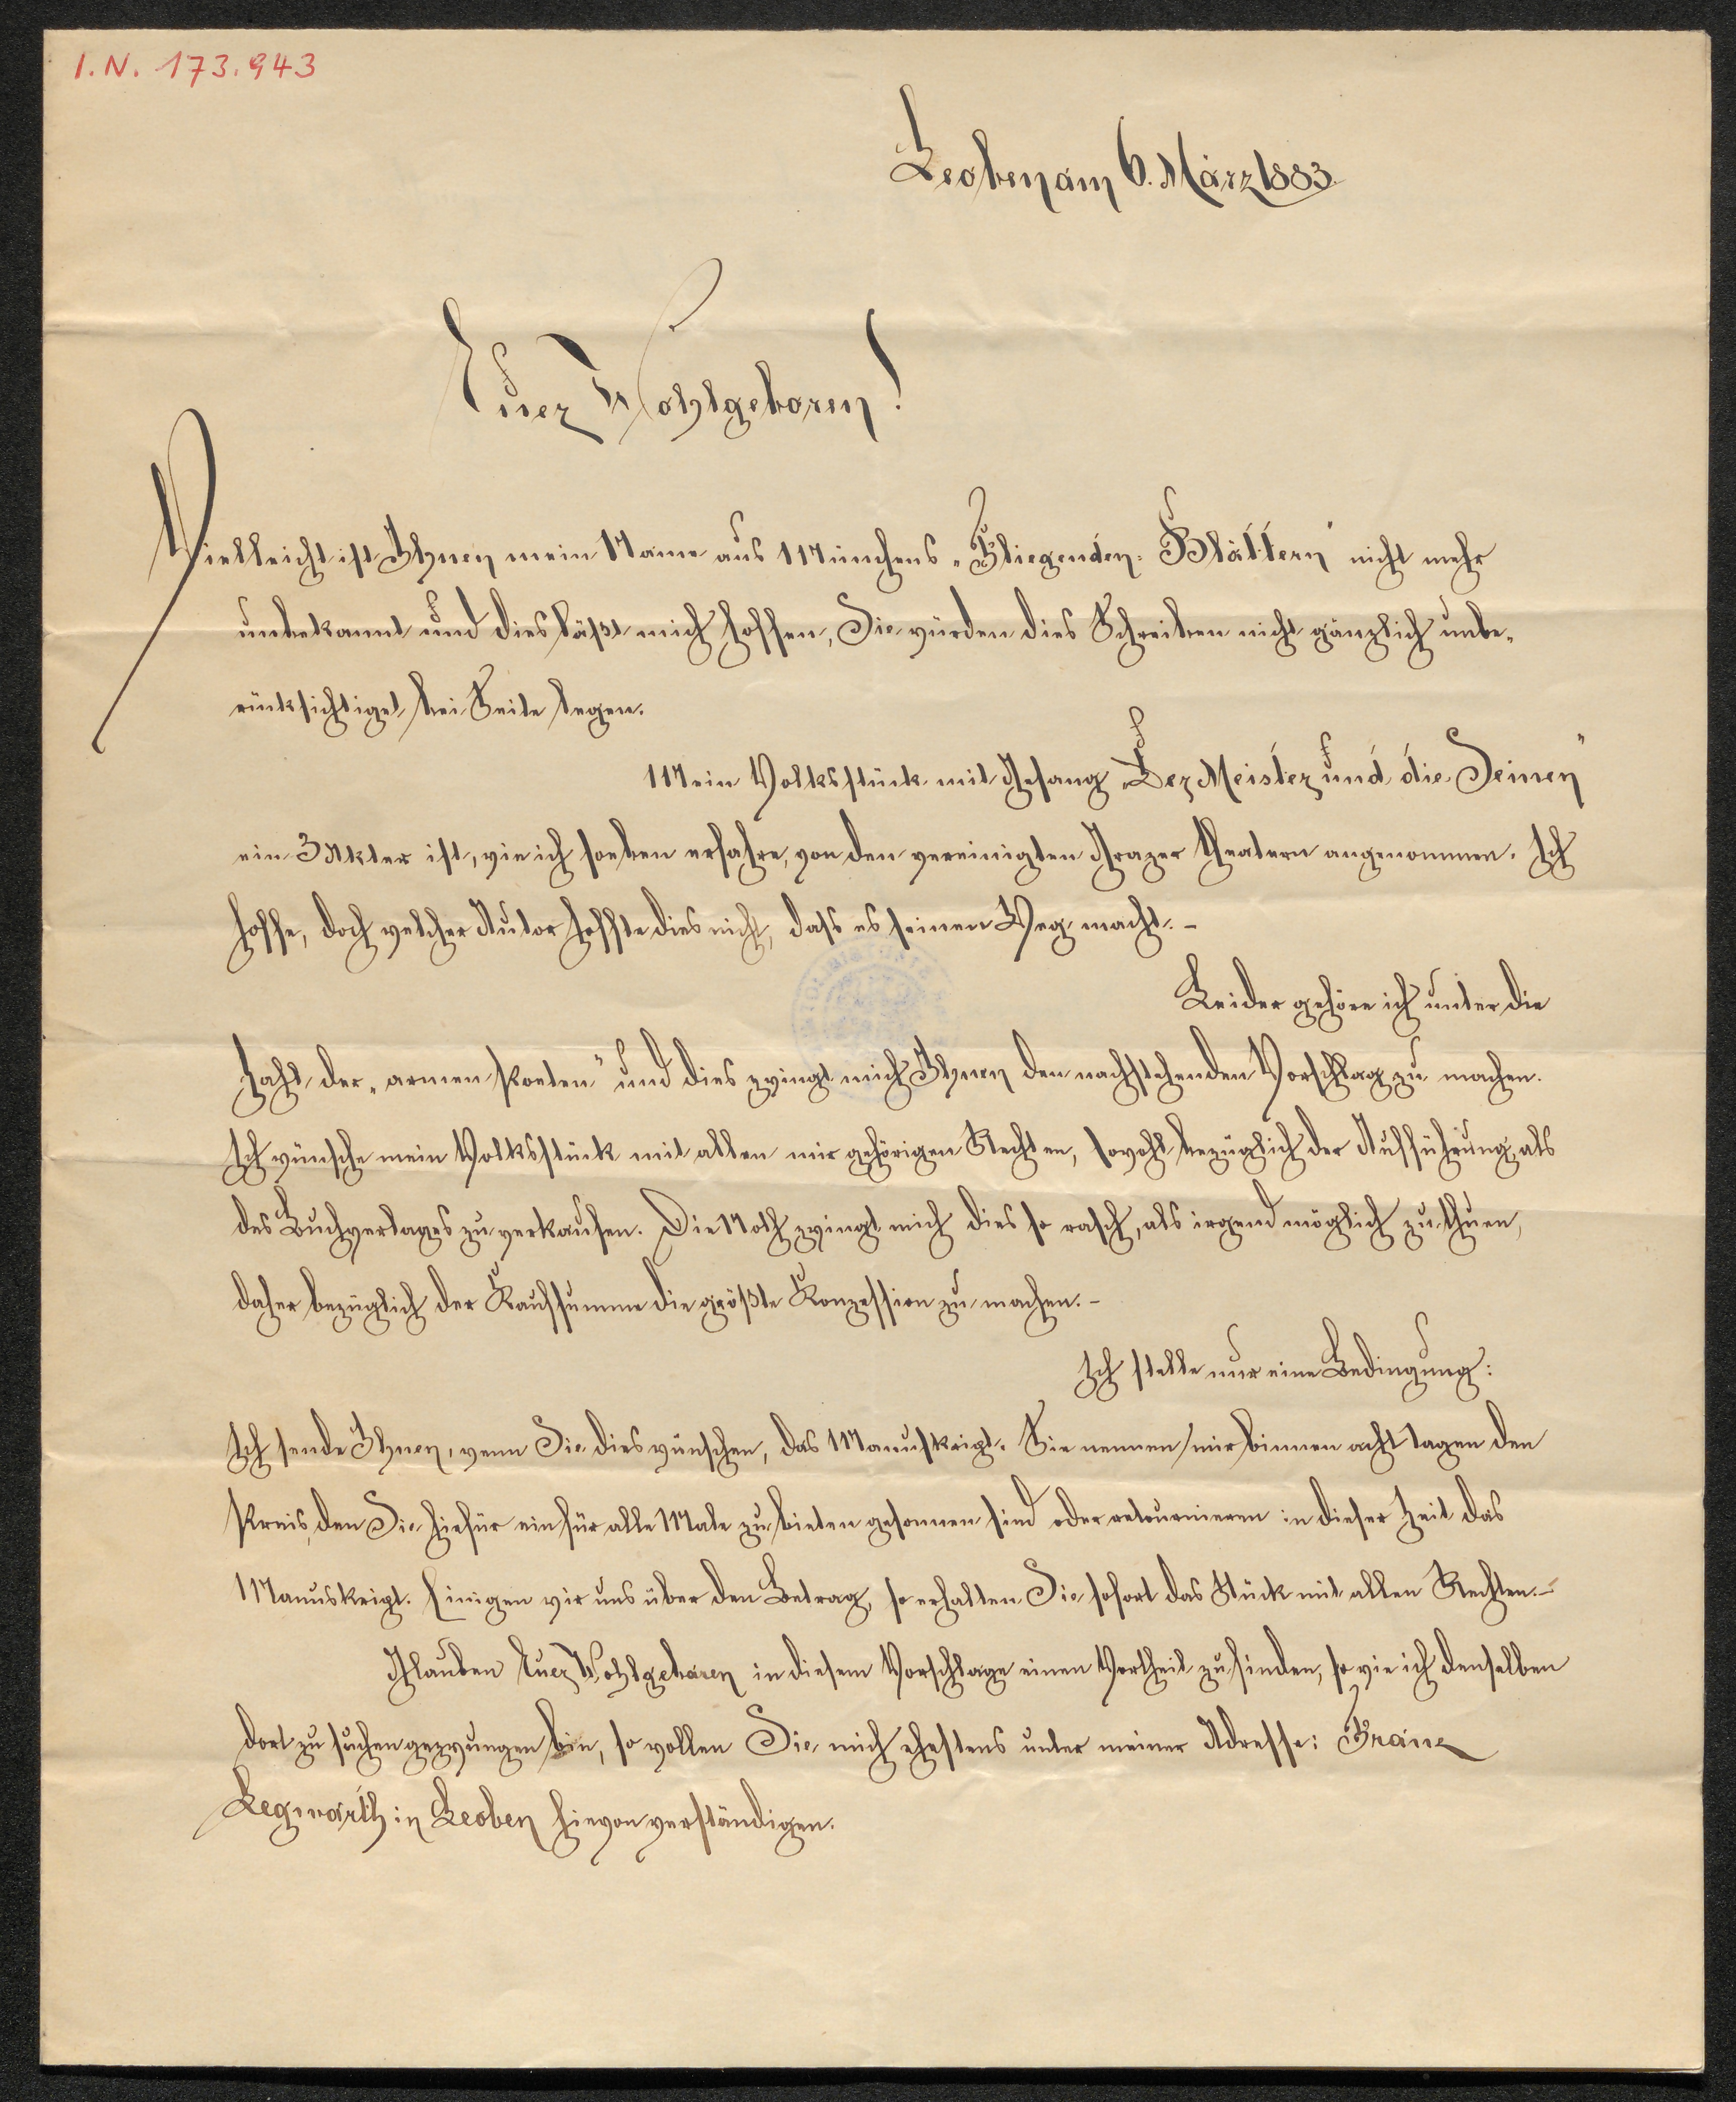 I.N. 173.943
Leoben am 6. März 1883.
Euer Wohlgeboren!
Vielleicht ist Ihnen mein Name aus Münchens „Fliegenden-Blättern" nicht mehr
unbekannt und dies läßt mich hoffen, Sie würden dies Schreiben nicht gänzlich unbe-
rücksichtiget bei Seite legen.
Mein Volksstück mit Gesang „Der Meister und die Seinen"
ein 3 Akter ist, wie ich soeben erfahre, von den vereinigten Grazer Theatern angenommen. Ich
hoffe, doch welcher Autor hoffte dies nicht, dass es seinen Weg macht. –
Leider gehöre ich unter die
Zahl der „armen Poeten" und dies zwingt mich Ihnen den nachstehenden Vorschlag zu machen.
Ich wünsche mein Volksstück mit allen mir gehörigen Rechten, sowohl bezüglich der Aufführung, als
des Buchverlages zu verkaufen. Die Noth zwingt mich dies so rasch, als irgend möglich zu thuen,
daher bezüglich der Kaufsumme die größte Konzession zu machen. –
Ich stelle nur eine Bedingung:
Ich sende Ihnen, wenn Sie dies wünschen, das Manuskript. Sie nennen mir binnen acht Tagen den
Preis, den Sie hiefür ein für alle Male zu bieten gesonnen sind oder retournieren in dieser Zeit das
Manuskript. Einigen wir uns über den Betrag, so erhalten Sie sofort das Stück mit allen Rechten. –
Glauben Euer Wohlgeboren in diesem Vorschlage einen Vortheil zu finden, so wie ich denselben
dort zu suchen gezwungen bin, so wollen Sie mich ehestens unter meiner Adresse: Franz
Legwarth in Leoben hievon verständigen.